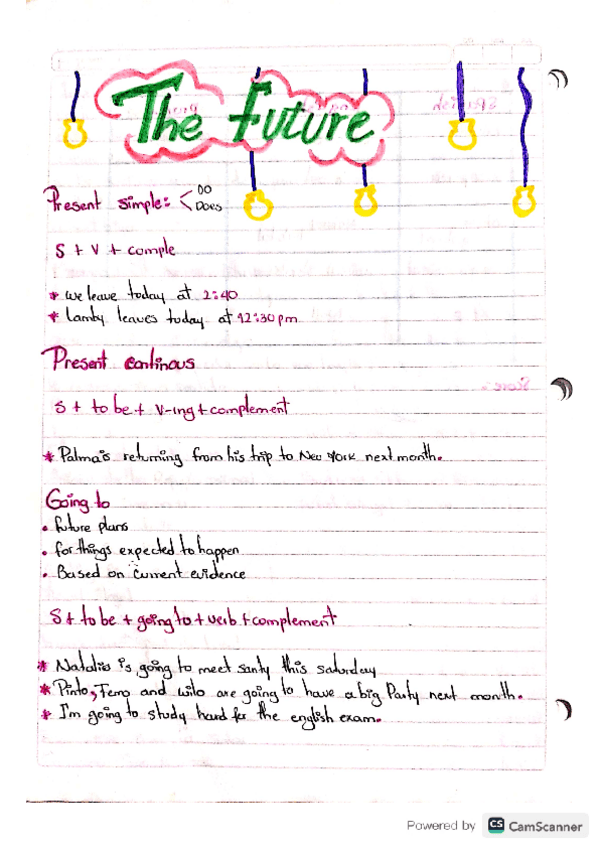 The Future
Present simple: < DO
Does
S + V + comple
* we leave today at 2:40
* Lamby leaves today at 12:30pm
Present continous
S + to be + V-ing + complement
* Palma is returning from his trip to New York next month.
Going to
• future plans
• for things expected to happen
• Based on current evidence
S + to be + going to + verb + complement
* Natalia is going to meet santy this saturday
* Pinto, Temo and wilo are going to have a big Party next month.
* I'm going to study hard for the english exam.
Powered by CS CamScanner